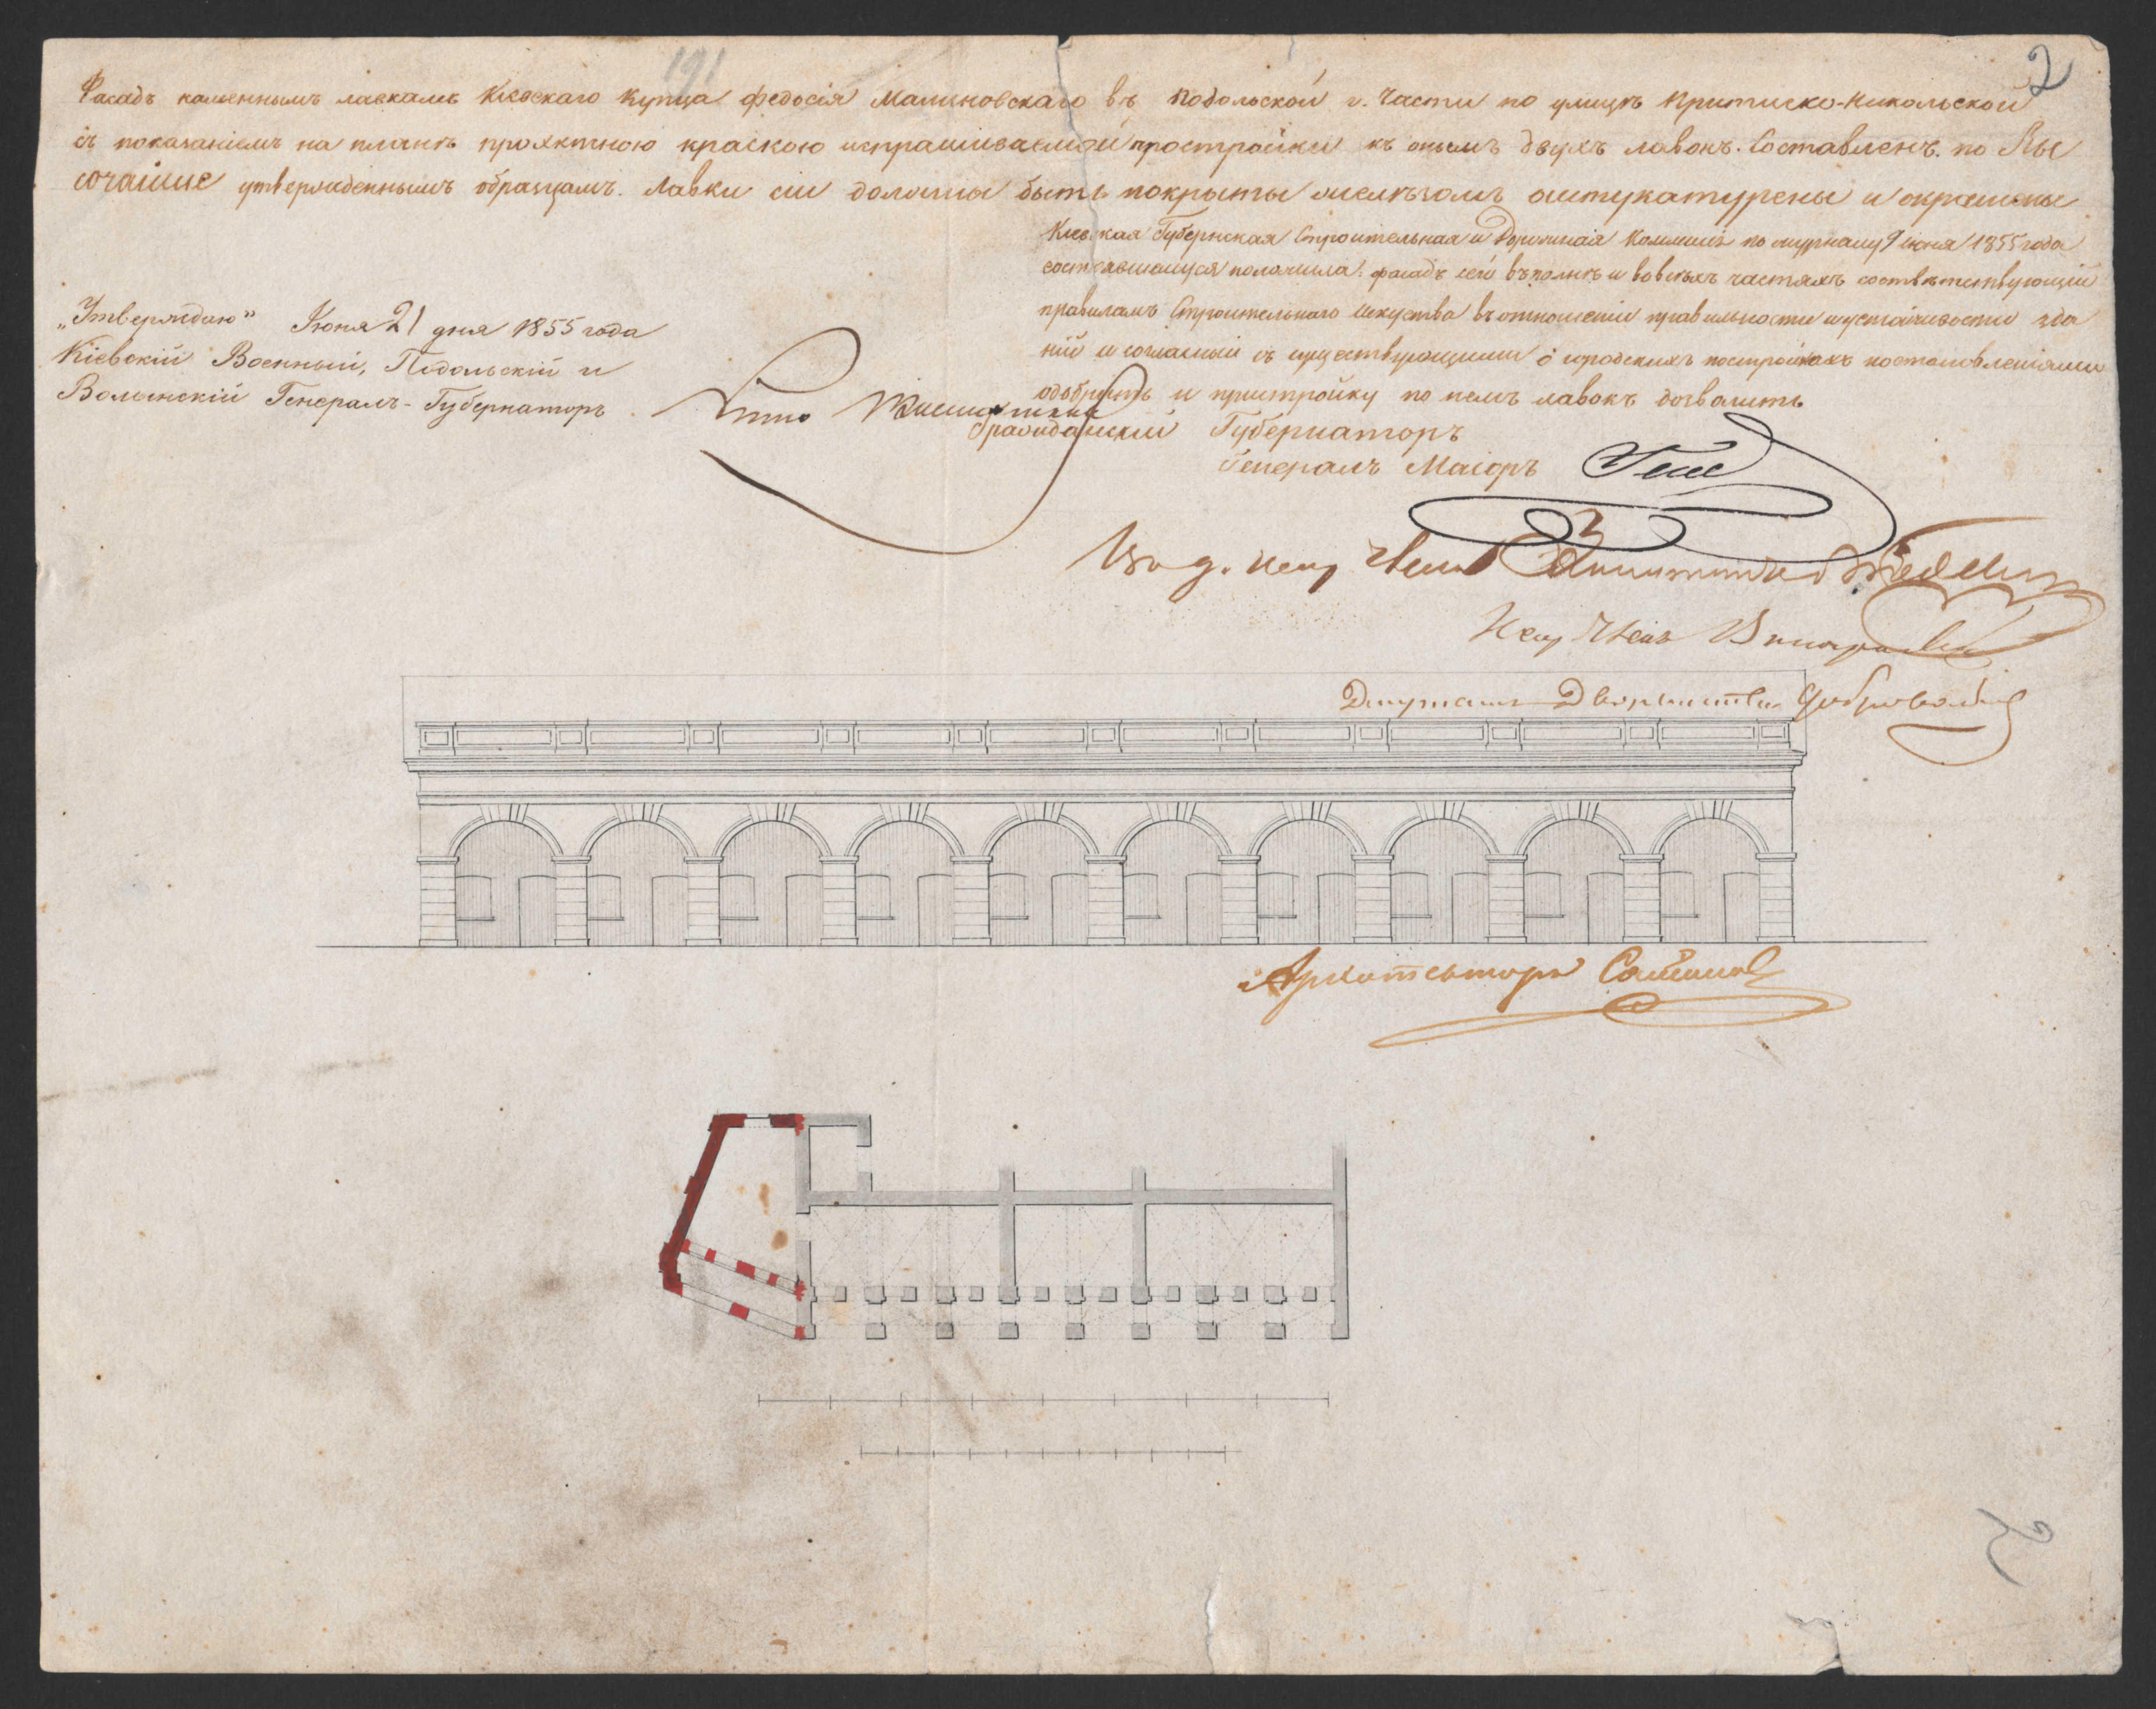 191
2
Фасадъ каменнымъ лавкамъ Кіевскаго Купца Федосія Малиновскаго въ Подольской ч. Части по улицѣ Притиско-Никольской
съ показаніемъ на планѣ прожектною краскою испрашиваемой простройки къ онымъ двухъ лавокъ. Составленъ. по Вы
сочайше утвержденнымъ образцамъ. Лавки сіи должны быть покрыты желѣзомъ оштукатурены и окрашены
Кіевская Губернская Строительная и Дорожная Коммисія по журналу 9 іюня 1855 года
состоявшемуся положила: фасадъ сей въ полнѣ и во всѣхъ частяхъ соотвѣтствующій
правиламъ Строительнаго Искуства въ отношеніи правильности и устойчивости зда
ній и согласный съ существующими о городскихъ постройкахъ постановленіями
одобрить и пристройку по немъ лавокъ дозволить
„Утверждаю" Іюня 21 дня 1855 года
Кіевскій Военный, Подольскій и
Волынскій Генералъ-Губернаторъ
Гражданскій Губернаторъ
Генералъ Маіоръ Гессе
Депутатъ Дворянства
Архитекторъ
2